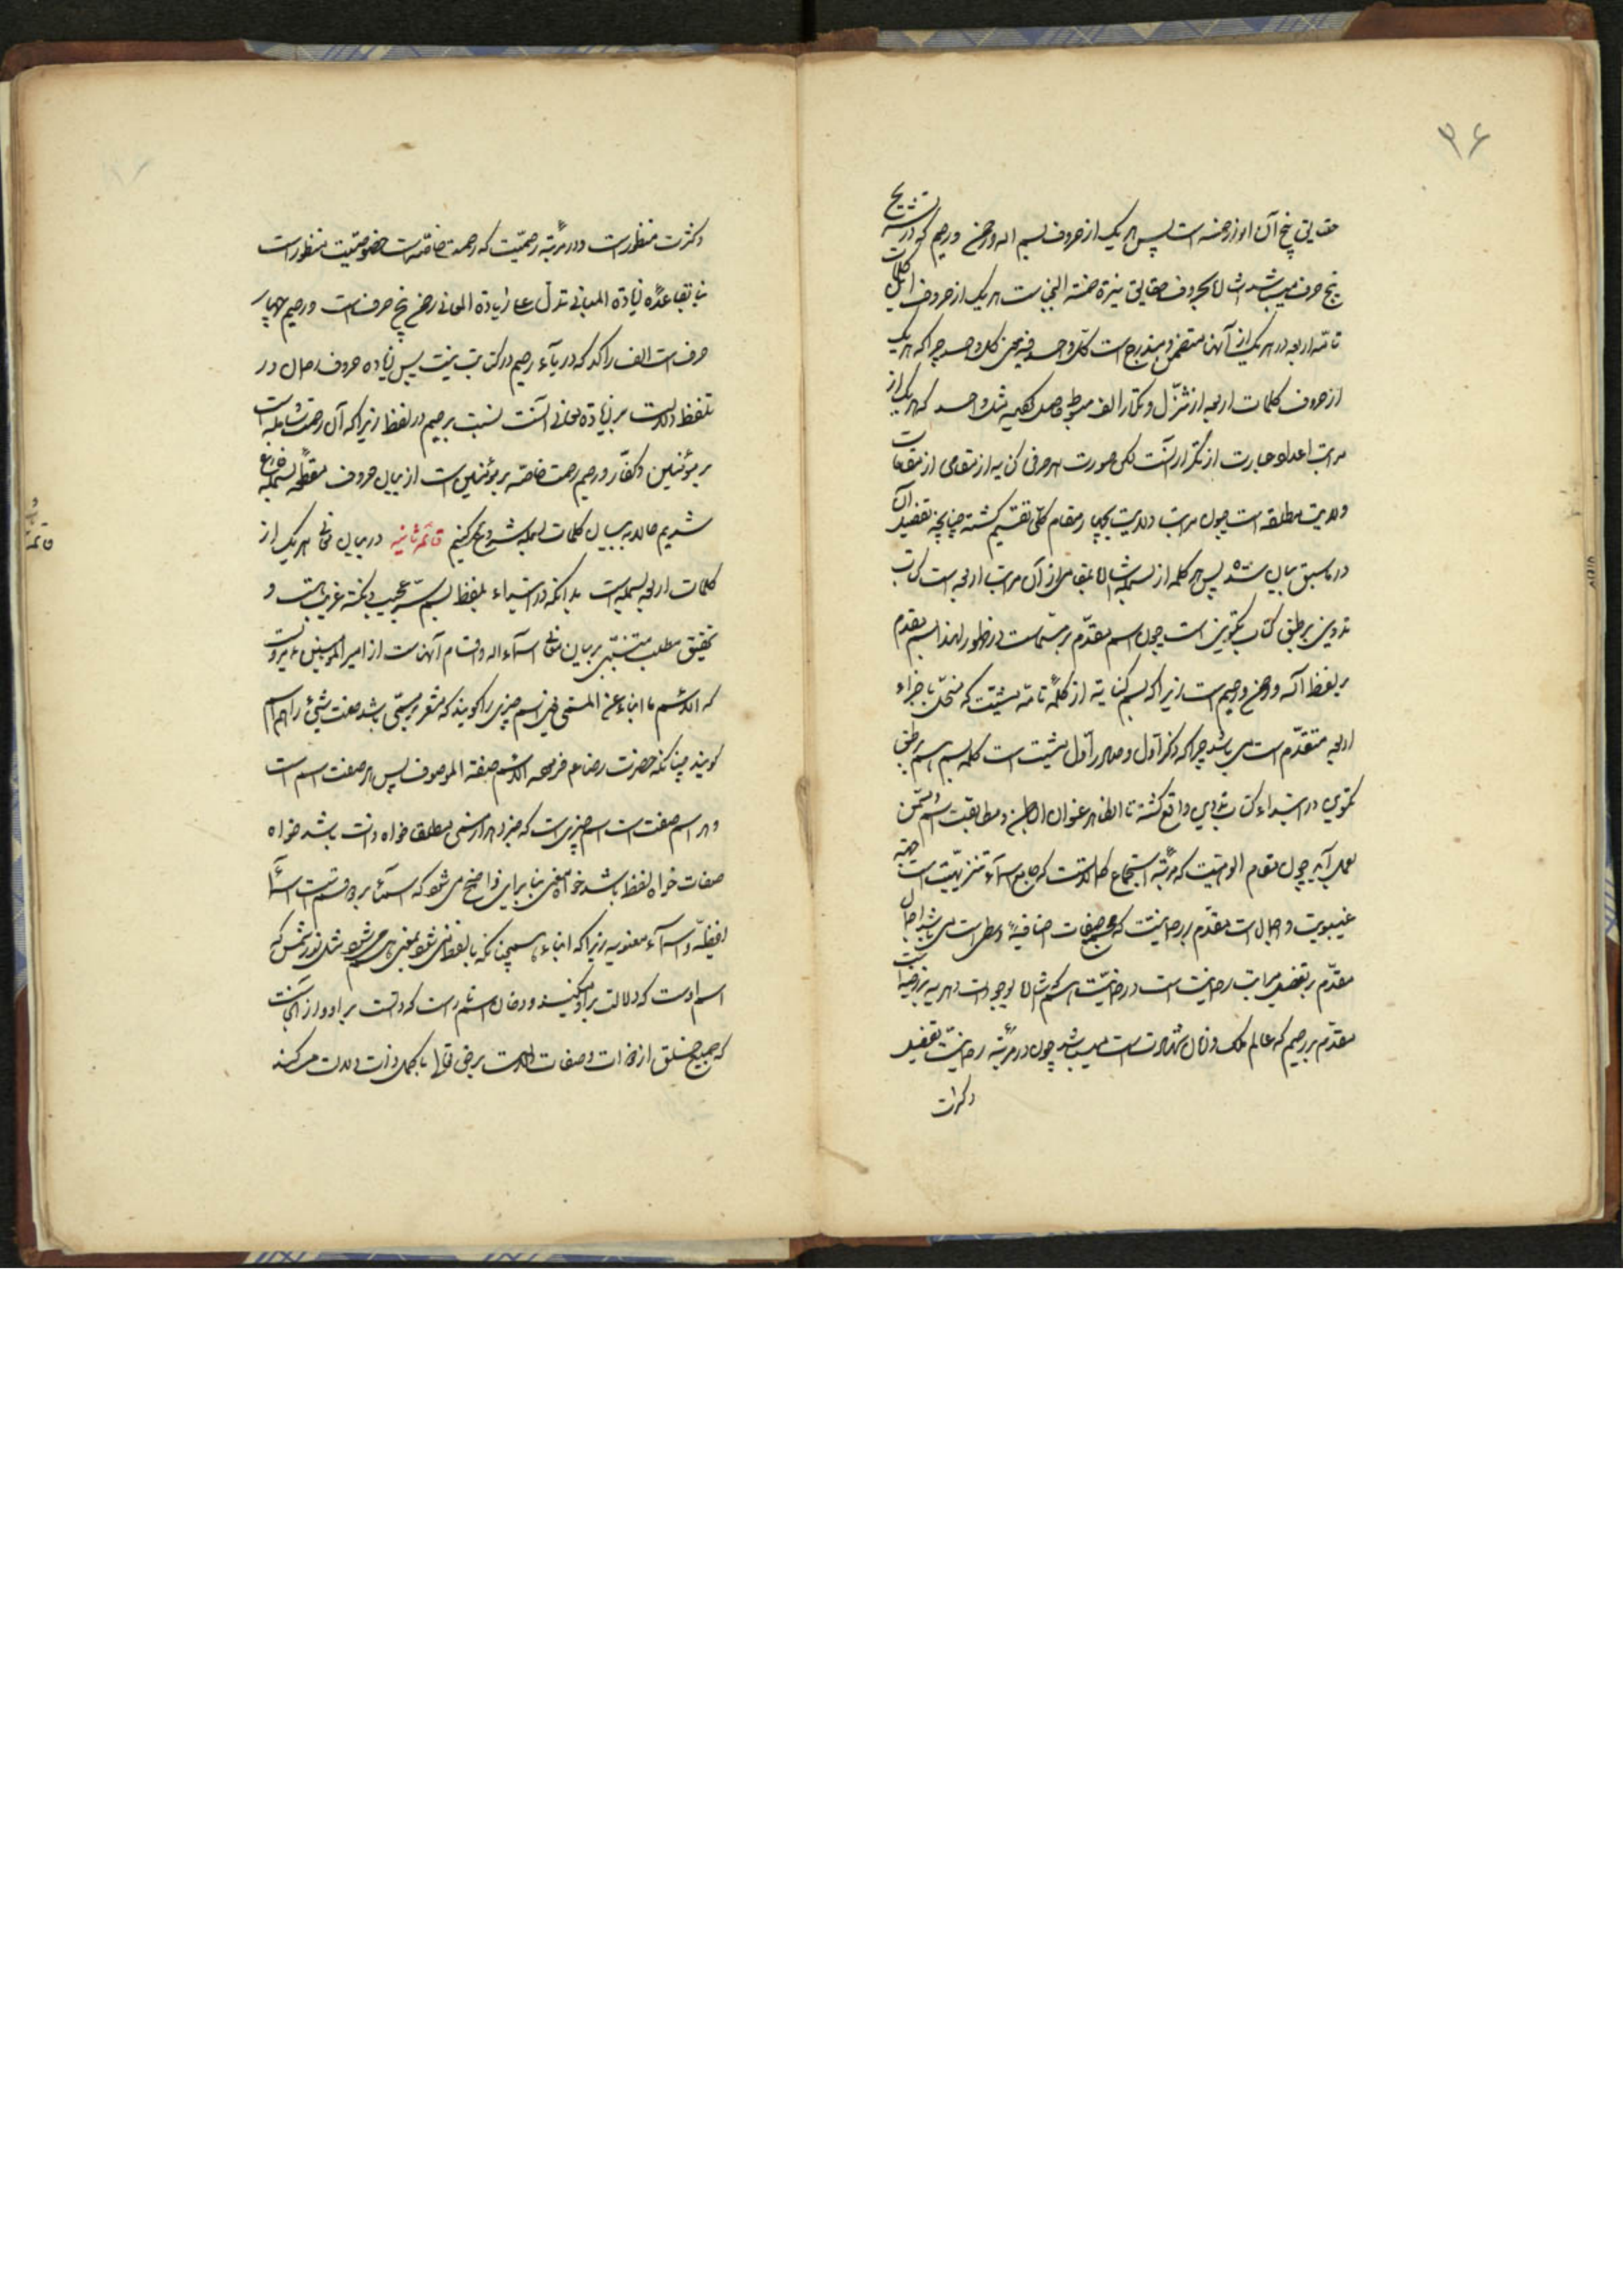 ۳۶
حقایق پنج آن انوار خمسه است پس هر یک از حروف بسم الله و رحمن و رحیم که در تشریح
پنج حرف میباشد اشاره بحروف حقایق نیرة خمسة النجباست هر یک از حروف کلمات
تامّه اربعه در هر یک از آنها متضمن و مندرج است کل واحد فیه معنی کل واحد چرا که هر یک
از حروف کلمات اربعه از تنزّل و تکرار الف مبسوط حاصل مثل واحد که هر یک از
مراتب اعداد عبارت از تکرار آنست لکن صورت هر حرفی کنایه از مقامی از مقامات
ولایت مطلقه است چون مراتب ولایت بچهار مقام کلّی تقسیم گشته چنانچه تفصیل آن
در ماسبق بیان شده پس هر کلمه از بسمله اشاره بمقامی از آن مراتب اربعه است کتاب
تدوین بر طبق کتاب تکوین است چون اسم مقدّم بر مسمّی است در ظهور لهذا بسم مقدم
بر لفظ الله و رحمن و رحیم است زیرا که بسم کنایه از کلمهٔ تامّه مشیّت که منحلّ باجزاء
اربعه متقدّم است می باشد چرا که ذکر اول و صادر اول مشیت است کلمه بسم هم بر طبق
تکوین در ابتداء کتاب تدوین واقع گشته تا الظاهر عنوان الباطن و مطابقت اسم و مسمّی
بعمل آید چون مقام الوهیت که مرتبهٔ استجماع کمالاتست که جامع اسماء تنزیهیّه است جهة
غیبوبیت و اجمال است مقدّم بر رحمانیتت که مجمع صفات اضافیه است می باشد اجمال
مقدّم بر تفصیل مراتب رحمانیت است و رحمانیّت اسم شامل موجودات
مقدّم بر رحیم که عالم ملک و زمان شهادت است میباشد چون در مرتبهٔ رحمانیّت تفصیل
و کثرت
و کثرت منظور است و در مرتبهٔ رحیمیّت که رحمت خاصّه است خصوصیّت منظور است
بنا بقاعدهٔ زیادة المبانی تدلّ علی زیادة المعانی رحمن پنج حرف است و رحیم چهار
حرف است الف راکد که در یاء رحیم در کتابت نیست پس زیاده حروف رحمان در
تلفظ دلالت بر زیاده معانی آنست نسبت برحیم در لفظ زیرا که آن رحمت شامله است
بر مؤمنین و کفّار و رحیم رحمت خاصّه بر مؤمنین است از بیان حروف مقطعه بسمله فارغ
شدیم حال به بیان کلمات بسمله شروع میکنیم قائمه ثانیه در بیان معانی هر یک از
کلمات اربعه بسمله است بدانکه در ابتداء بلفظ بسم سرّ عجیب و نکته غریب است و
تحقیق مطلب مبتنی بر بیان معانی اسماء الله و اقسام آنهاست از امیر المؤمنین ع مرویست
که الاسم ما انباء عن المسمّی یعنی اسم چیزی را گویند که مشعر بر مسمّی باشد صفت شیئ را هم اسم
گویند چنانکه حضرت رضا ع فرموده الاسم صفة الموصوف پس هر صفت اسم است
و هر اسم صفت است اسم چیزی است که خبر دهد از مسمی مطلقا خواه ذات باشد خواه
صفات خواه لفظ باشد خواه معنی بنا بر این واضح می شود که اسماء بر دو قسم است اسماء
لفظیّه و اسماء معنویه زیرا که انباء همچنانکه بالفظ می شود بمعنی هم می شود مثل نور شمس که
اسم اوست که دلالت بر او میکند و دخان اسم نار است که دالست بر او و از آنجاست
که جمیع خلق از ذوات و صفات دلالت بر حق تعالی بأکمل ذات دلالت میکنند
قائمه